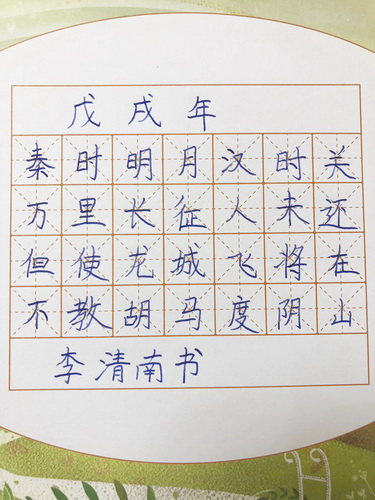 戊戌年
秦时明月汉时关
万里长征人未还
但使龙城飞将在
不教胡马度阴山
李清南书